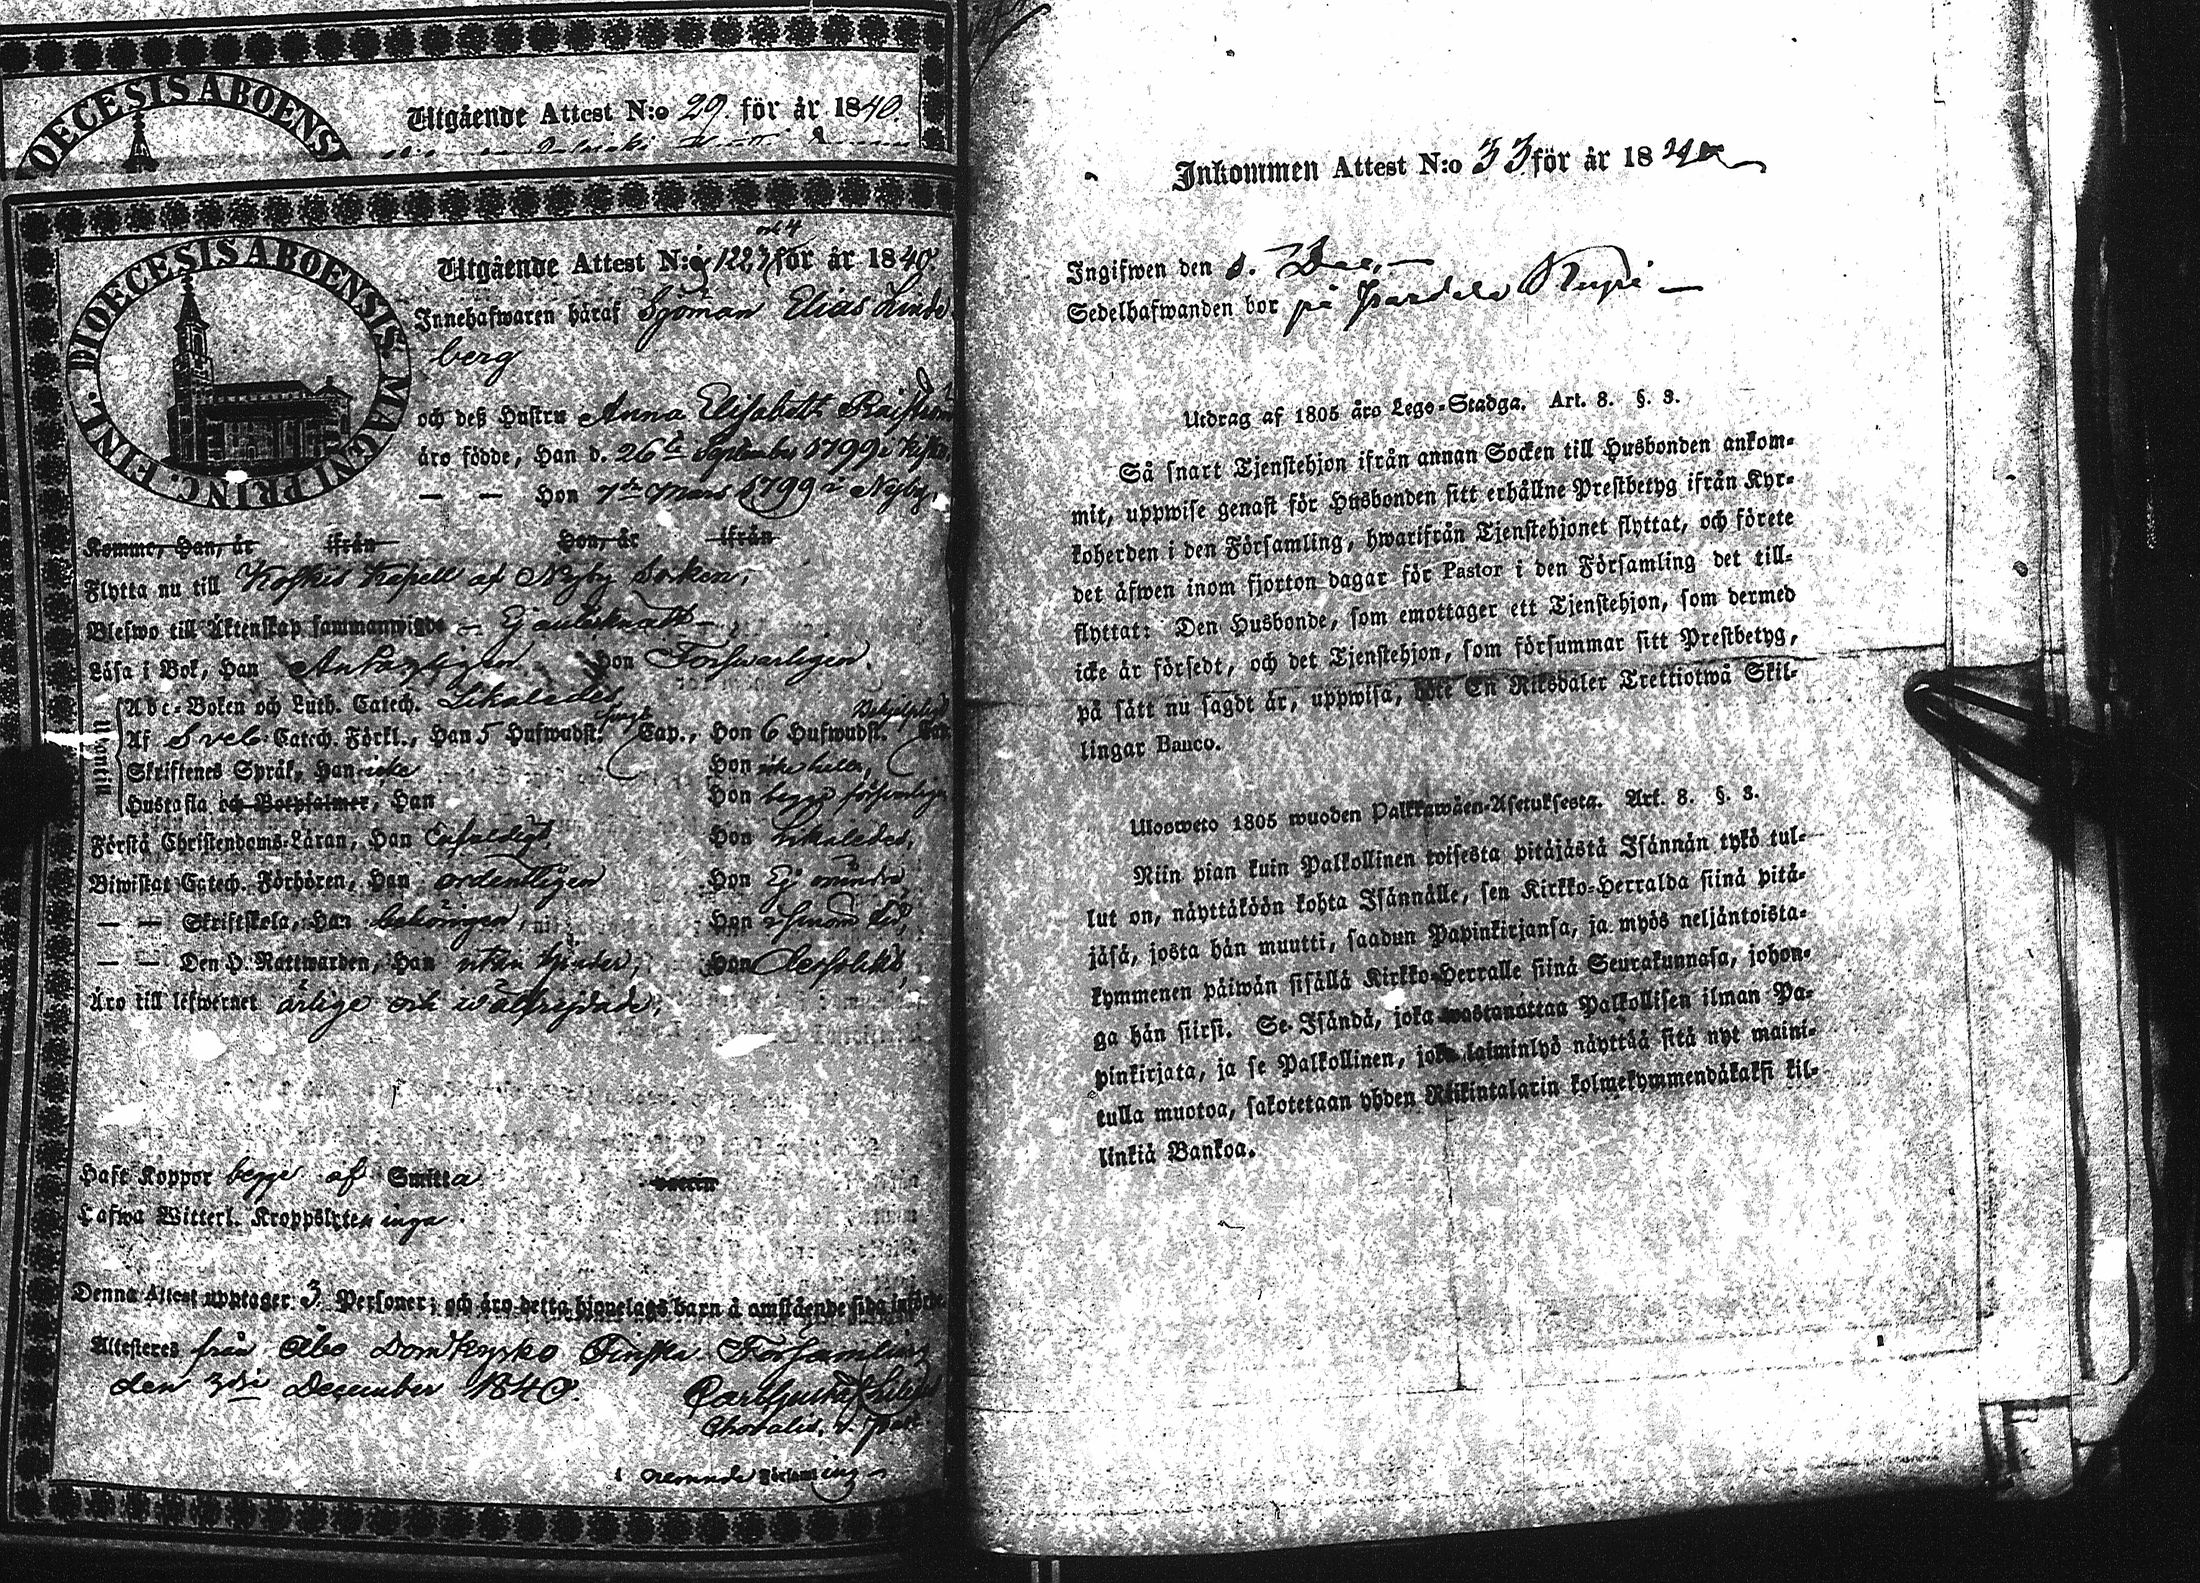 DIOECESIS ABOENSIS
Utgående Attest N:o 29. för år 1840.
DIOECESIS ABOENSIS MAGNI PRINC. FINL.
Utgående Attest N:o 122, 3 och 4 för år 1840.
Innehafwaren häraf Sjöman Elias Linde
berg
och deß Hustru Anna Elisabeth
äro födde, Han d. 26te September 1799 i Kisko
— — Hon 7de Mars 1799 i Nyby,
Komme, Han, år ifrån Hon, år ifrån
Flytta nu till Koskis Kapell af Nyby Socken,
Blefwo till Äktenskap sammanwigde — Ej antecknadt —
Läsa i Bok, Han Hon Forswarligen.
Kunna
Abc-Boken och Luth. Catech. Likaledes
Af Sveb. Catech. Förkl., Han 5 Hufwudst. Cap., Hon 6 Hufwudst. Cap.
Skriftenes Språk, Han icke Hon icke heller,
Hustafla och Botpsalmer, Han Hon begge försvarligen
Förstå Christendoms-Läran, Han Enfaldigt, Hon likaledes,
Biwistat Catech. Förhören, Han ordentligen Hon Ej mindre
— — Skriftskola, Han behörigen, Hon
— — Den H. Nattwarden, Han utan hinder, Hon
Äro till lefwernet ärlige och wälfrejdade,
Haft Koppor begge af Smitta
Hafwa Witterl. Kroppslyten inga
Denna Attest upptager 3 Personer; och äro detta hjonelags barn å omstående sida införde.
Attesteras från Åbo Domkyrko Finska Församling
den 3die December 1840.
Carl Gustaf
Choralis, v. Past.
i nemnde Församling
Inkommen Attest N:o 33 för år 1840
Ingifwen den 8. Dec. —
Sedelhafwanden bor på
Utdrag af 1805 års Lego-Stadga. Art. 8. §. 3.
Så snart Tjenstehjon ifrån annan Socken till Husbonden ankom-
mit, uppwise genast för Husbonden sitt erhållne Prestbetyg ifrån Kyr-
koherden i den Församling, hwarifrån Tjenstehjonet flyttat, och förete
det äfwen inom fjorton dagar för Pastor i den Församling det till-
flyttat: Den Husbonde, som emottager ett Tjenstehjon, som dermed
icke är försedt, och det Tjenstehjon, som försummar sitt Prestbetyg,
på sätt nu sagdt är, uppwisa, böte En Riksdaler Trettiotwå Skil-
lingar Banco.
Ulosweto 1805 wuoden Palkkawäen-Asetuksesta. Art. 8. §. 3.
Niin pian kuin Palkollinen toisesta pitäjästä Isännän tykö tul-
lut on, näyttäköön kohta Isännälle, sen Kirkko-Herralda siinä pitä-
jäsä, josta hän muutti, saadun Papinkirjansa, ja myös neljäntoista-
kymmenen päiwän sisällä Kirkko-Herralle siinä Seurakunnasa, johon-
ga hän siirsi. Se Isändä, joka wastanottaa Palkollisen ilman Pa-
pinkirjata, ja se Palkollinen, joka laiminlyö näyttää sitä nyt maini-
tulla muotoa, sakotetaan yhden Riikintalarin kolmekymmendäkaksi kil-
linkiä Bankoa.